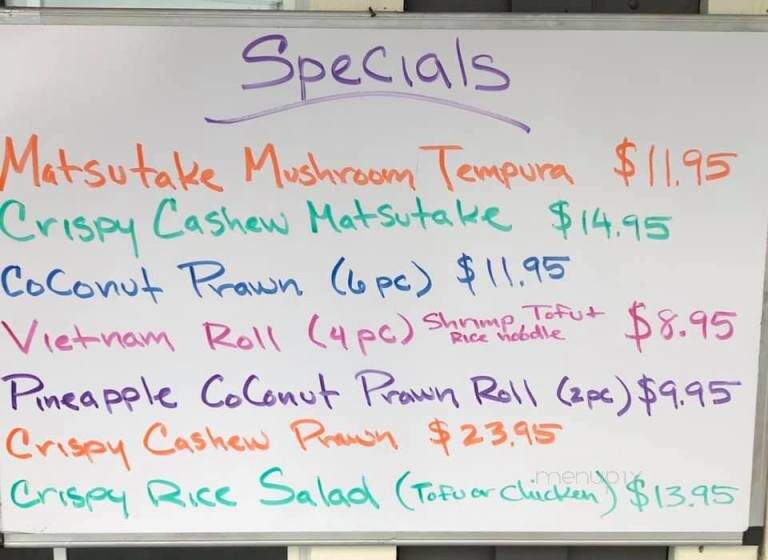 Specials
Matsutake Mushroom Tempura $11.95
Crispy Cashew Matsutake $14.95
Coconut Prawn (6pc) $11.95
Vietnam Roll (4pc) Shrimp, Tofu + Rice noodle $8.95
Pineapple Coconut Prawn Roll (2pc) $9.95
Crispy Cashew Prawn $23.95
Crispy Rice Salad (Tofu or chicken) $13.95
menupix